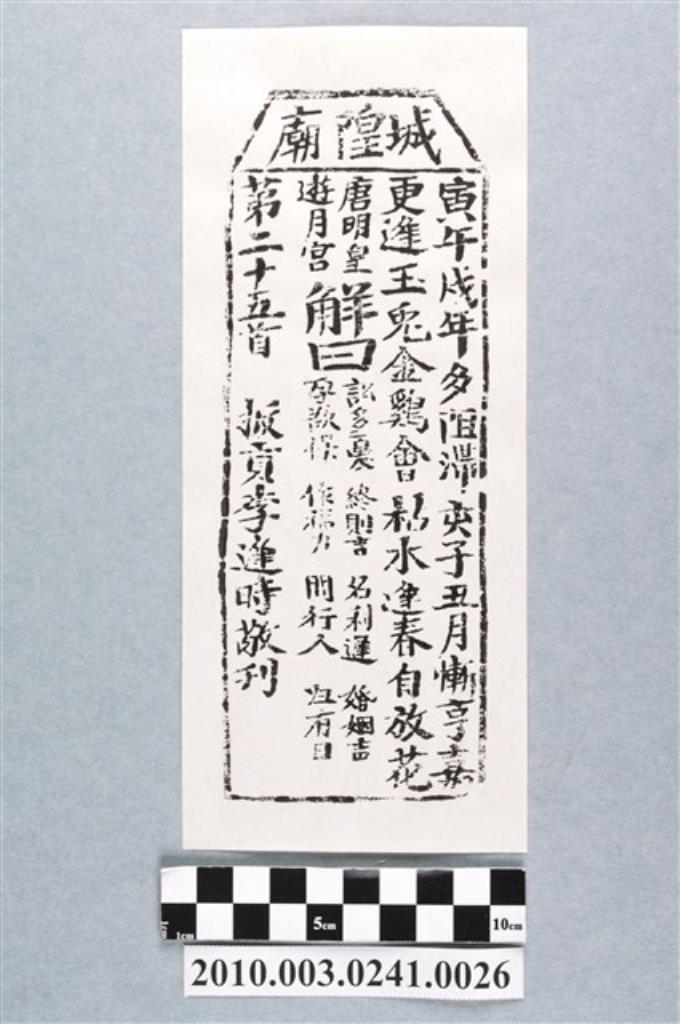 城隍廟
寅午戌年多阻滯 亥子丑月慚亨嘉
更逢玉兎金鷄會 水逢春自放花
唐明皇
遊月宮
解曰
訟多憂 終則吉 名利遲 婚姻吉
孕欲保 作福力 問行人 归有日
第二十五首 拔貢李逢時敬刊
5cm
10cm
1cm
2010.003.0241.0026